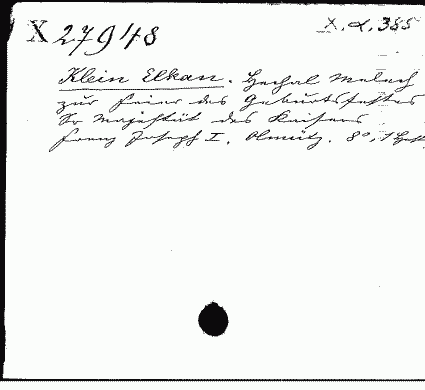 X 27948
X. α. 385
Klein Elkan. Hechal Melech
zur Feier des Geburtsfestes
Sr Majestät des Kaisers
Franz Joseph I. Olmütz. 8°, 1 Heft